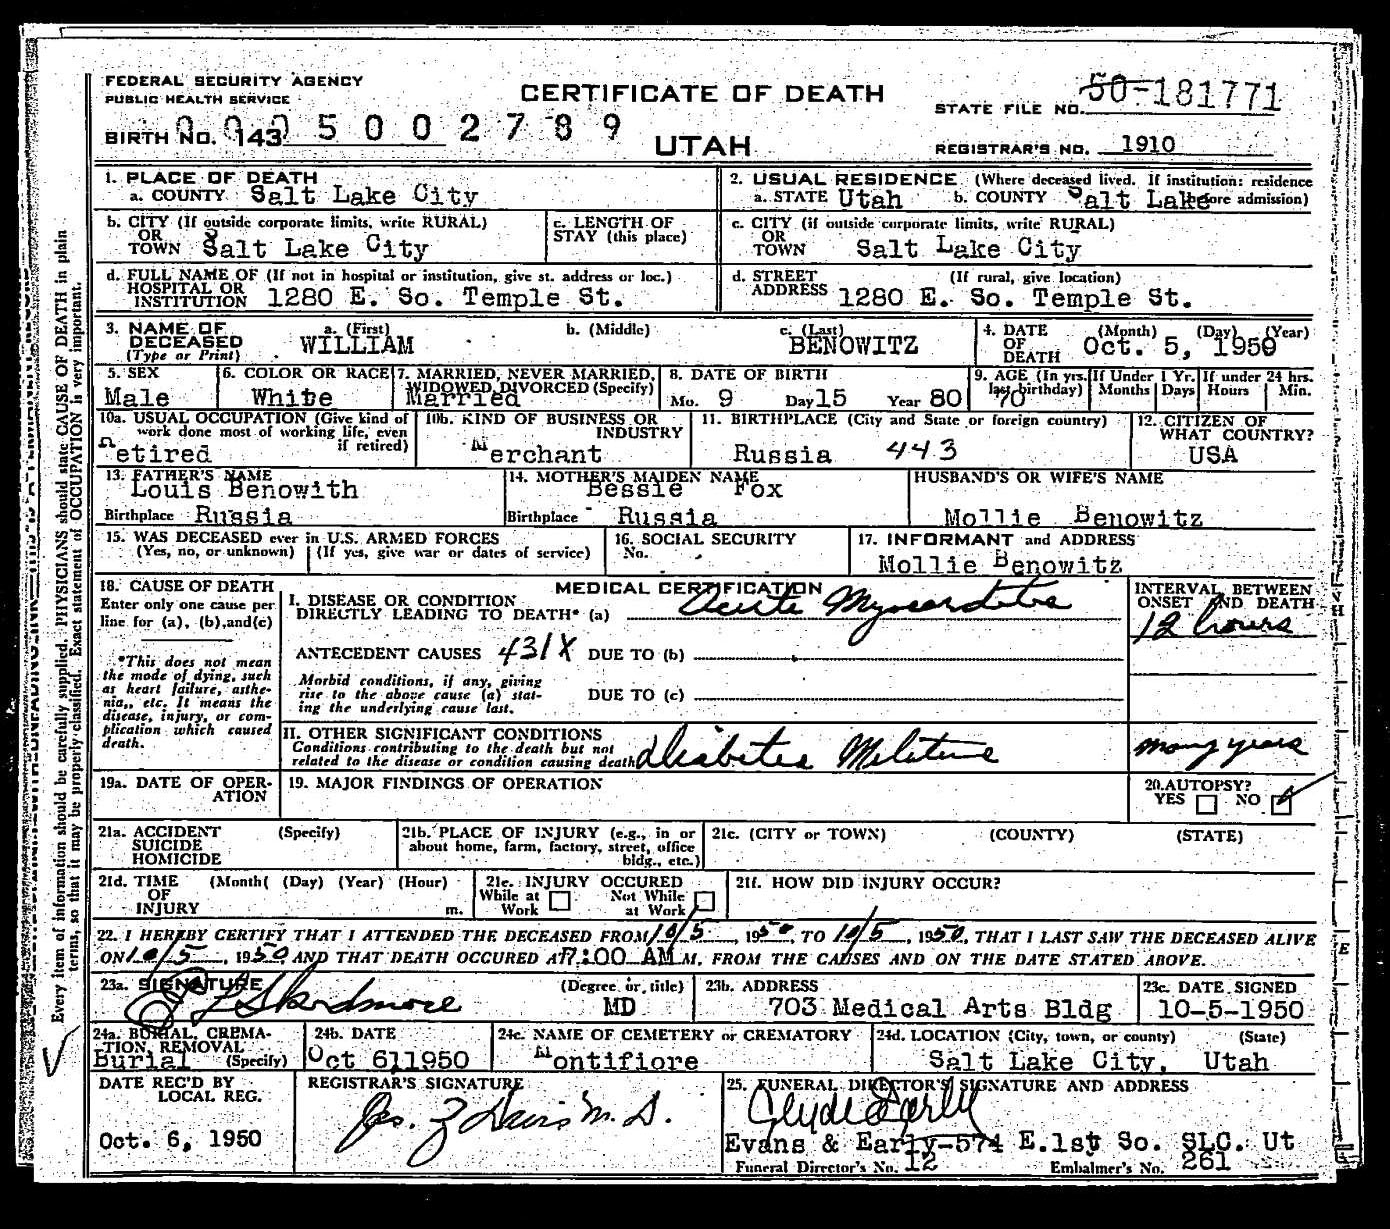 FEDERAL SECURITY AGENCY
PUBLIC HEALTH SERVICE
CERTIFICATE OF DEATH
STATE FILE NO. 50-181771
BIRTH NO. 143 0005002789
UTAH
REGISTRAR'S NO. 1910
1. PLACE OF DEATH
a. COUNTY Salt Lake City
2. USUAL RESIDENCE (Where deceased lived. If institution: residence
a. STATE Utah b. COUNTY Salt Lake before admission)
b. CITY (If outside corporate limits, write RURAL)
OR
TOWN Salt Lake City
c. LENGTH OF
STAY (this place)
c. CITY (if outside corporate limits, write RURAL)
OR
TOWN Salt Lake City
d. FULL NAME OF (If not in hospital or institution, give st. address or loc.)
HOSPITAL OR
INSTITUTION 1280 E. So. Temple St.
d. STREET (If rural, give location)
ADDRESS 1280 E. So. Temple St.
3. NAME OF
DECEASED
(Type or Print)
a. (First)
WILLIAM
b. (Middle)
c. (Last)
BENOWITZ
4. DATE
OF
DEATH
(Month) (Day) (Year)
Oct. 5, 1950
5. SEX
Male
6. COLOR OR RACE
White
7. MARRIED, NEVER MARRIED,
WIDOWED, DIVORCED (Specify)
Married
8. DATE OF BIRTH
Mo. 9 Day 15 Year 80
9. AGE (In yrs.
last birthday)
70
If Under 1 Yr.
Months Days
If under 24 hrs.
Hours Min.
10a. USUAL OCCUPATION (Give kind of
work done most of working life, even
if retired)
Retired
10b. KIND OF BUSINESS OR
INDUSTRY
Merchant
11. BIRTHPLACE (City and State or foreign country)
Russia 443
12. CITIZEN OF
WHAT COUNTRY?
USA
13. FATHER'S NAME
Louis Benowith
Birthplace Russia
14. MOTHER'S MAIDEN NAME
Bessie Fox
Birthplace Russia
HUSBAND'S OR WIFE'S NAME
Mollie Benowitz
15. WAS DECEASED ever in U.S. ARMED FORCES
(Yes, no, or unknown) (If yes, give war or dates of service)
16. SOCIAL SECURITY
No.
17. INFORMANT and ADDRESS
Mollie Benowitz
18. CAUSE OF DEATH
Enter only one cause per
line for (a), (b), and (c)
*This does not mean
the mode of dying, such
as heart failure, asthe-
nia,, etc. It means the
disease, injury, or com-
plication which caused
death.
MEDICAL CERTIFICATION
I. DISEASE OR CONDITION
DIRECTLY LEADING TO DEATH* (a) Acute Myocarditis
INTERVAL BETWEEN
ONSET AND DEATH
12 hours
ANTECEDENT CAUSES 431X DUE TO (b)
Morbid conditions, if any, giving
rise to the above cause (a) stat-
ing the underlying cause last.
DUE TO (c)
II. OTHER SIGNIFICANT CONDITIONS
Conditions contributing to the death but not
related to the disease or condition causing death
Diabetes Melitus
many years
19a. DATE OF OPER-
ATION
19. MAJOR FINDINGS OF OPERATION
20. AUTOPSY?
YES NO
21a. ACCIDENT (Specify)
SUICIDE
HOMICIDE
21b. PLACE OF INJURY (e.g., in or
about home, farm, factory, street, office
bldg., etc.)
21c. (CITY or TOWN) (COUNTY) (STATE)
21d. TIME (Month( (Day) (Year) (Hour)
OF
INJURY m.
21e. INJURY OCCURED
While at Not While
Work at Work
21f. HOW DID INJURY OCCUR?
22. I HEREBY CERTIFY THAT I ATTENDED THE DECEASED FROM 10/5, 1950, TO 10/5, 1950, THAT I LAST SAW THE DECEASED ALIVE
ON 10/5, 1950 AND THAT DEATH OCCURED AT 7:00 AM M, FROM THE CAUSES AND ON THE DATE STATED ABOVE.
23a. SIGNATURE (Degree or title)
Skardmore MD
23b. ADDRESS
703 Medical Arts Bldg
23c. DATE SIGNED
10-5-1950
24a. BURIAL, CREMA-
TION, REMOVAL
Burial (Specify)
24b. DATE
Oct 6, 1950
24c. NAME OF CEMETERY or CREMATORY
Montifiore
24d. LOCATION (City, town, or county) (State)
Salt Lake City, Utah
DATE REC'D BY
LOCAL REG.
Oct. 6, 1950
REGISTRAR'S SIGNATURE
Jas. Z Davis M.D.
25. FUNERAL DIRECTOR'S SIGNATURE AND ADDRESS
Clyde Early
Evans & Early-574 E.1st So. SLC. Ut
Funeral Director's No. 12 Embalmer's No. 261
Every item of information should be carefully supplied. PHYSICIANS should state CAUSE OF DEATH in plain
terms, so that it may be properly classified. Exact statement of OCCUPATION is very important.